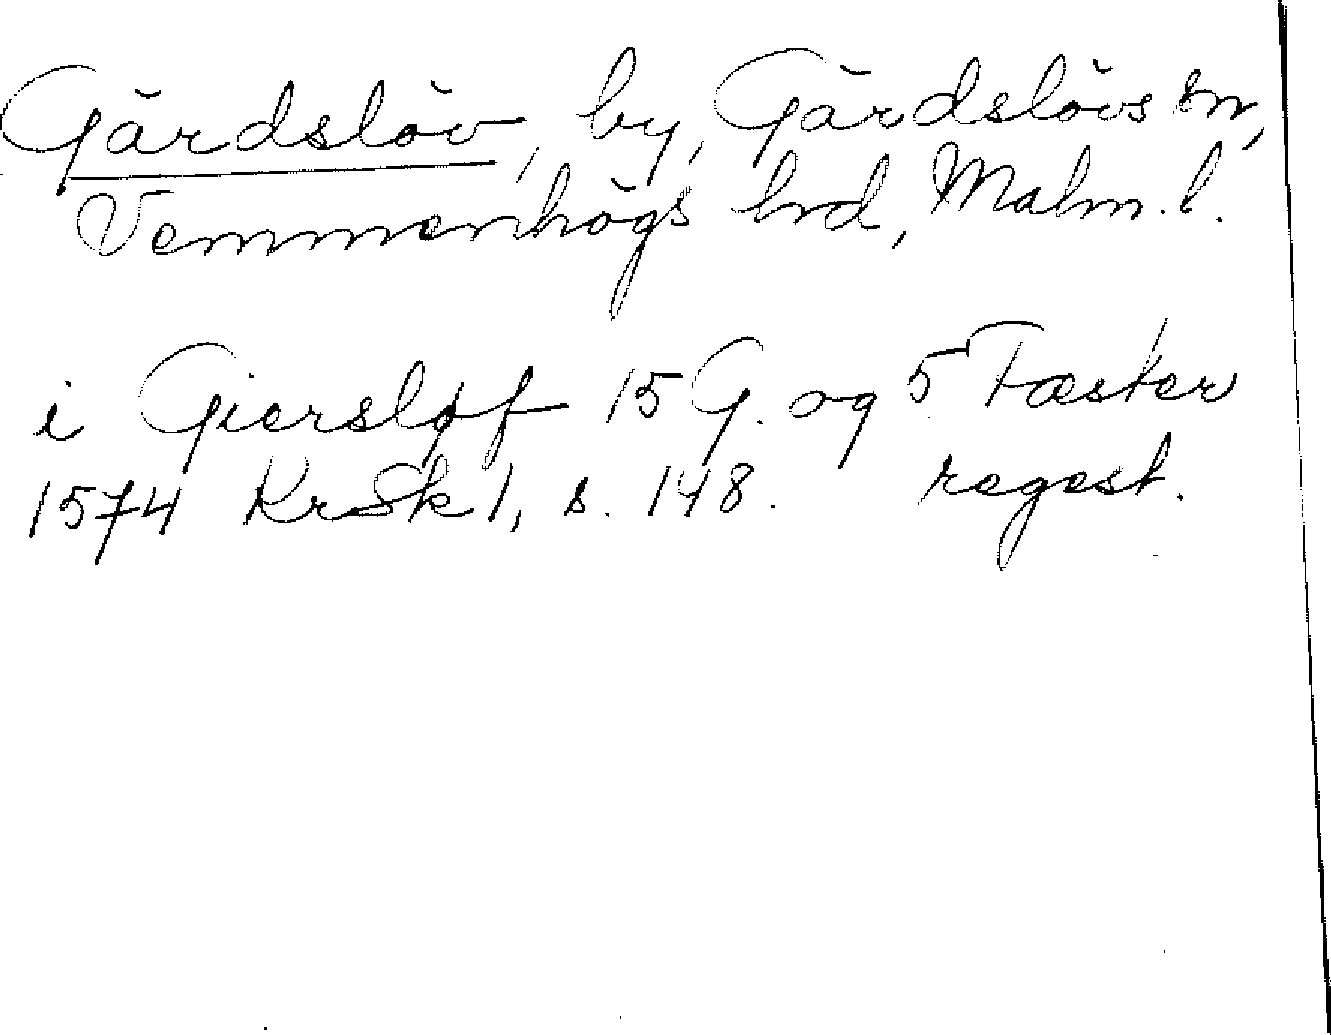 Gärdslöv, by, Gärdslövs sn,
Vemmenhögs hrd, Malm. l.
i Giersløf 15 G. og 5 Fæster
1574 KrSk 1, s. 148. regest.